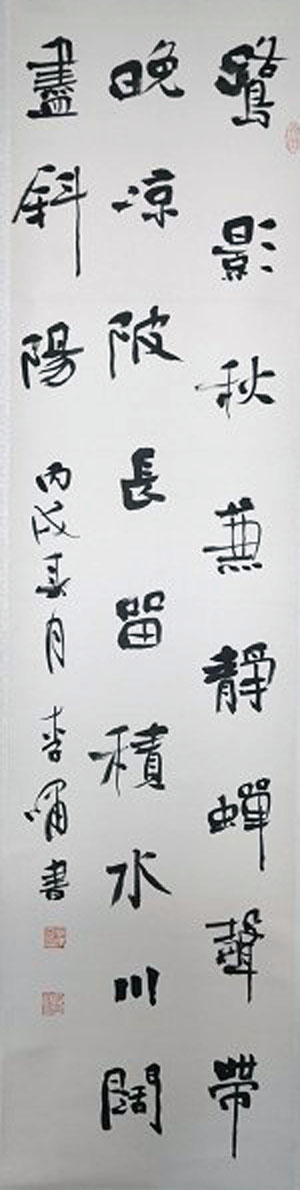 鷺影秋蒹靜蟬聲帶
晚凉陂長留積水川闊
盡斜陽
丙戌春月李嘯書